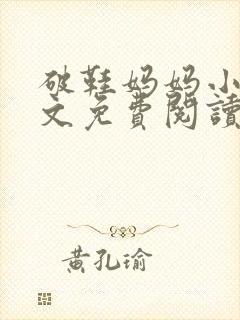 破鞋妈妈小
文免費閱讀
黄孔瑜